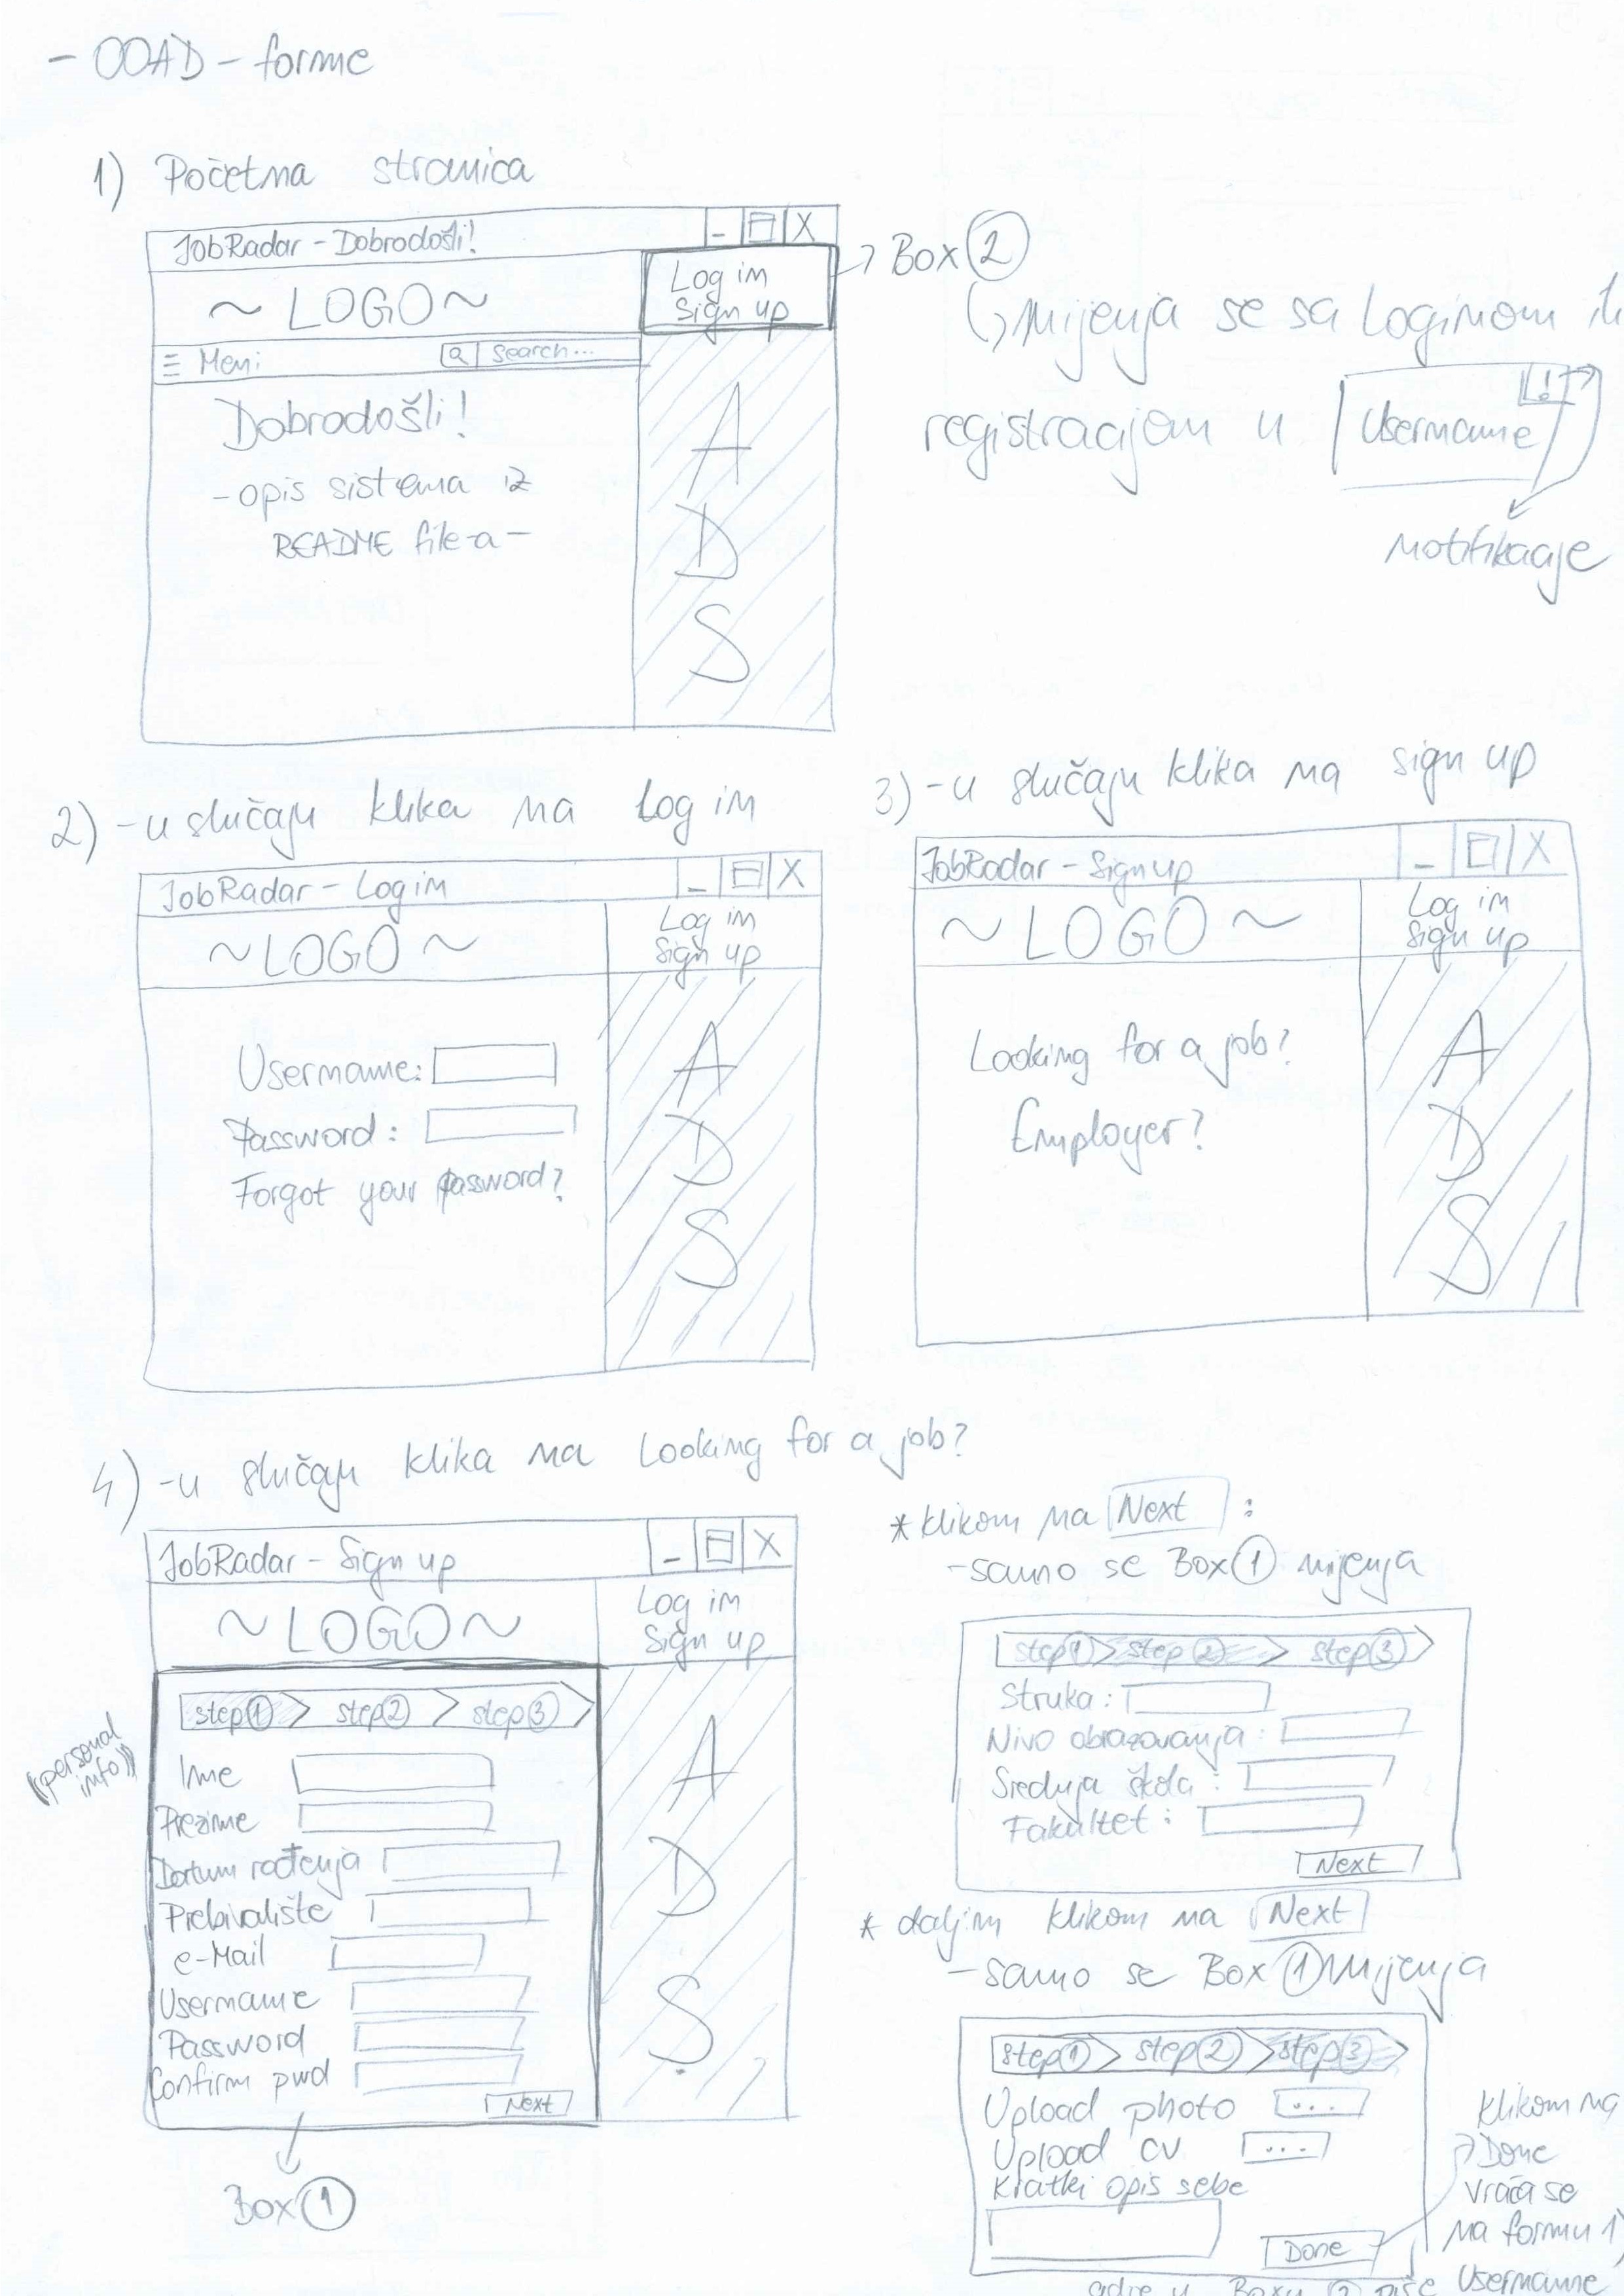 - OOAD - forme
1) Početna stranica
JobRadar - Dobrodošli! _ X
~ LOGO ~
Log in
Sign up
→ Box ②
↳ mijenja se sa Loginom
registracijom u Username !
notifikacije
≡ Meni
Search...
Dobrodošli!
- opis sistema iz
README file-a -
A
D
S
2) - u slučaju klika na Log in
JobRadar - Log in _ X
~ LOGO ~
Log in
Sign up
Username:
Password:
Forgot your password?
A
D
S
3) - u slučaju klika na sign up
JobRadar - Sign up _ X
~ LOGO ~
Log in
Sign up
Looking for a job?
Employer?
A
D
S
4) - u slučaju klika na Looking for a job?
JobRadar - Sign up _ X
~ LOGO ~
Log in
Sign up
((personal
info))
step ① > step ② > step ③
Ime
Prezime
Datum rođenja
Prebivalište
e-Mail
Username
Password
Confirm pwd
Next
A
D
S
Box ①
* klikom na Next :
- samo se Box ① mijenja
step ① > step ② > step ③
Struka:
Nivo obrazovanja:
Srednja škola:
Fakultet:
Next
* daljim klikom na Next
- samo se Box ① mijenja
step ① > step ② > step ③
Upload photo ...
Upload cv ...
Kratki opis sebe
Done
klikom na
Done
vraća se
na formu 1)
gdje u Boxu ② piše Username